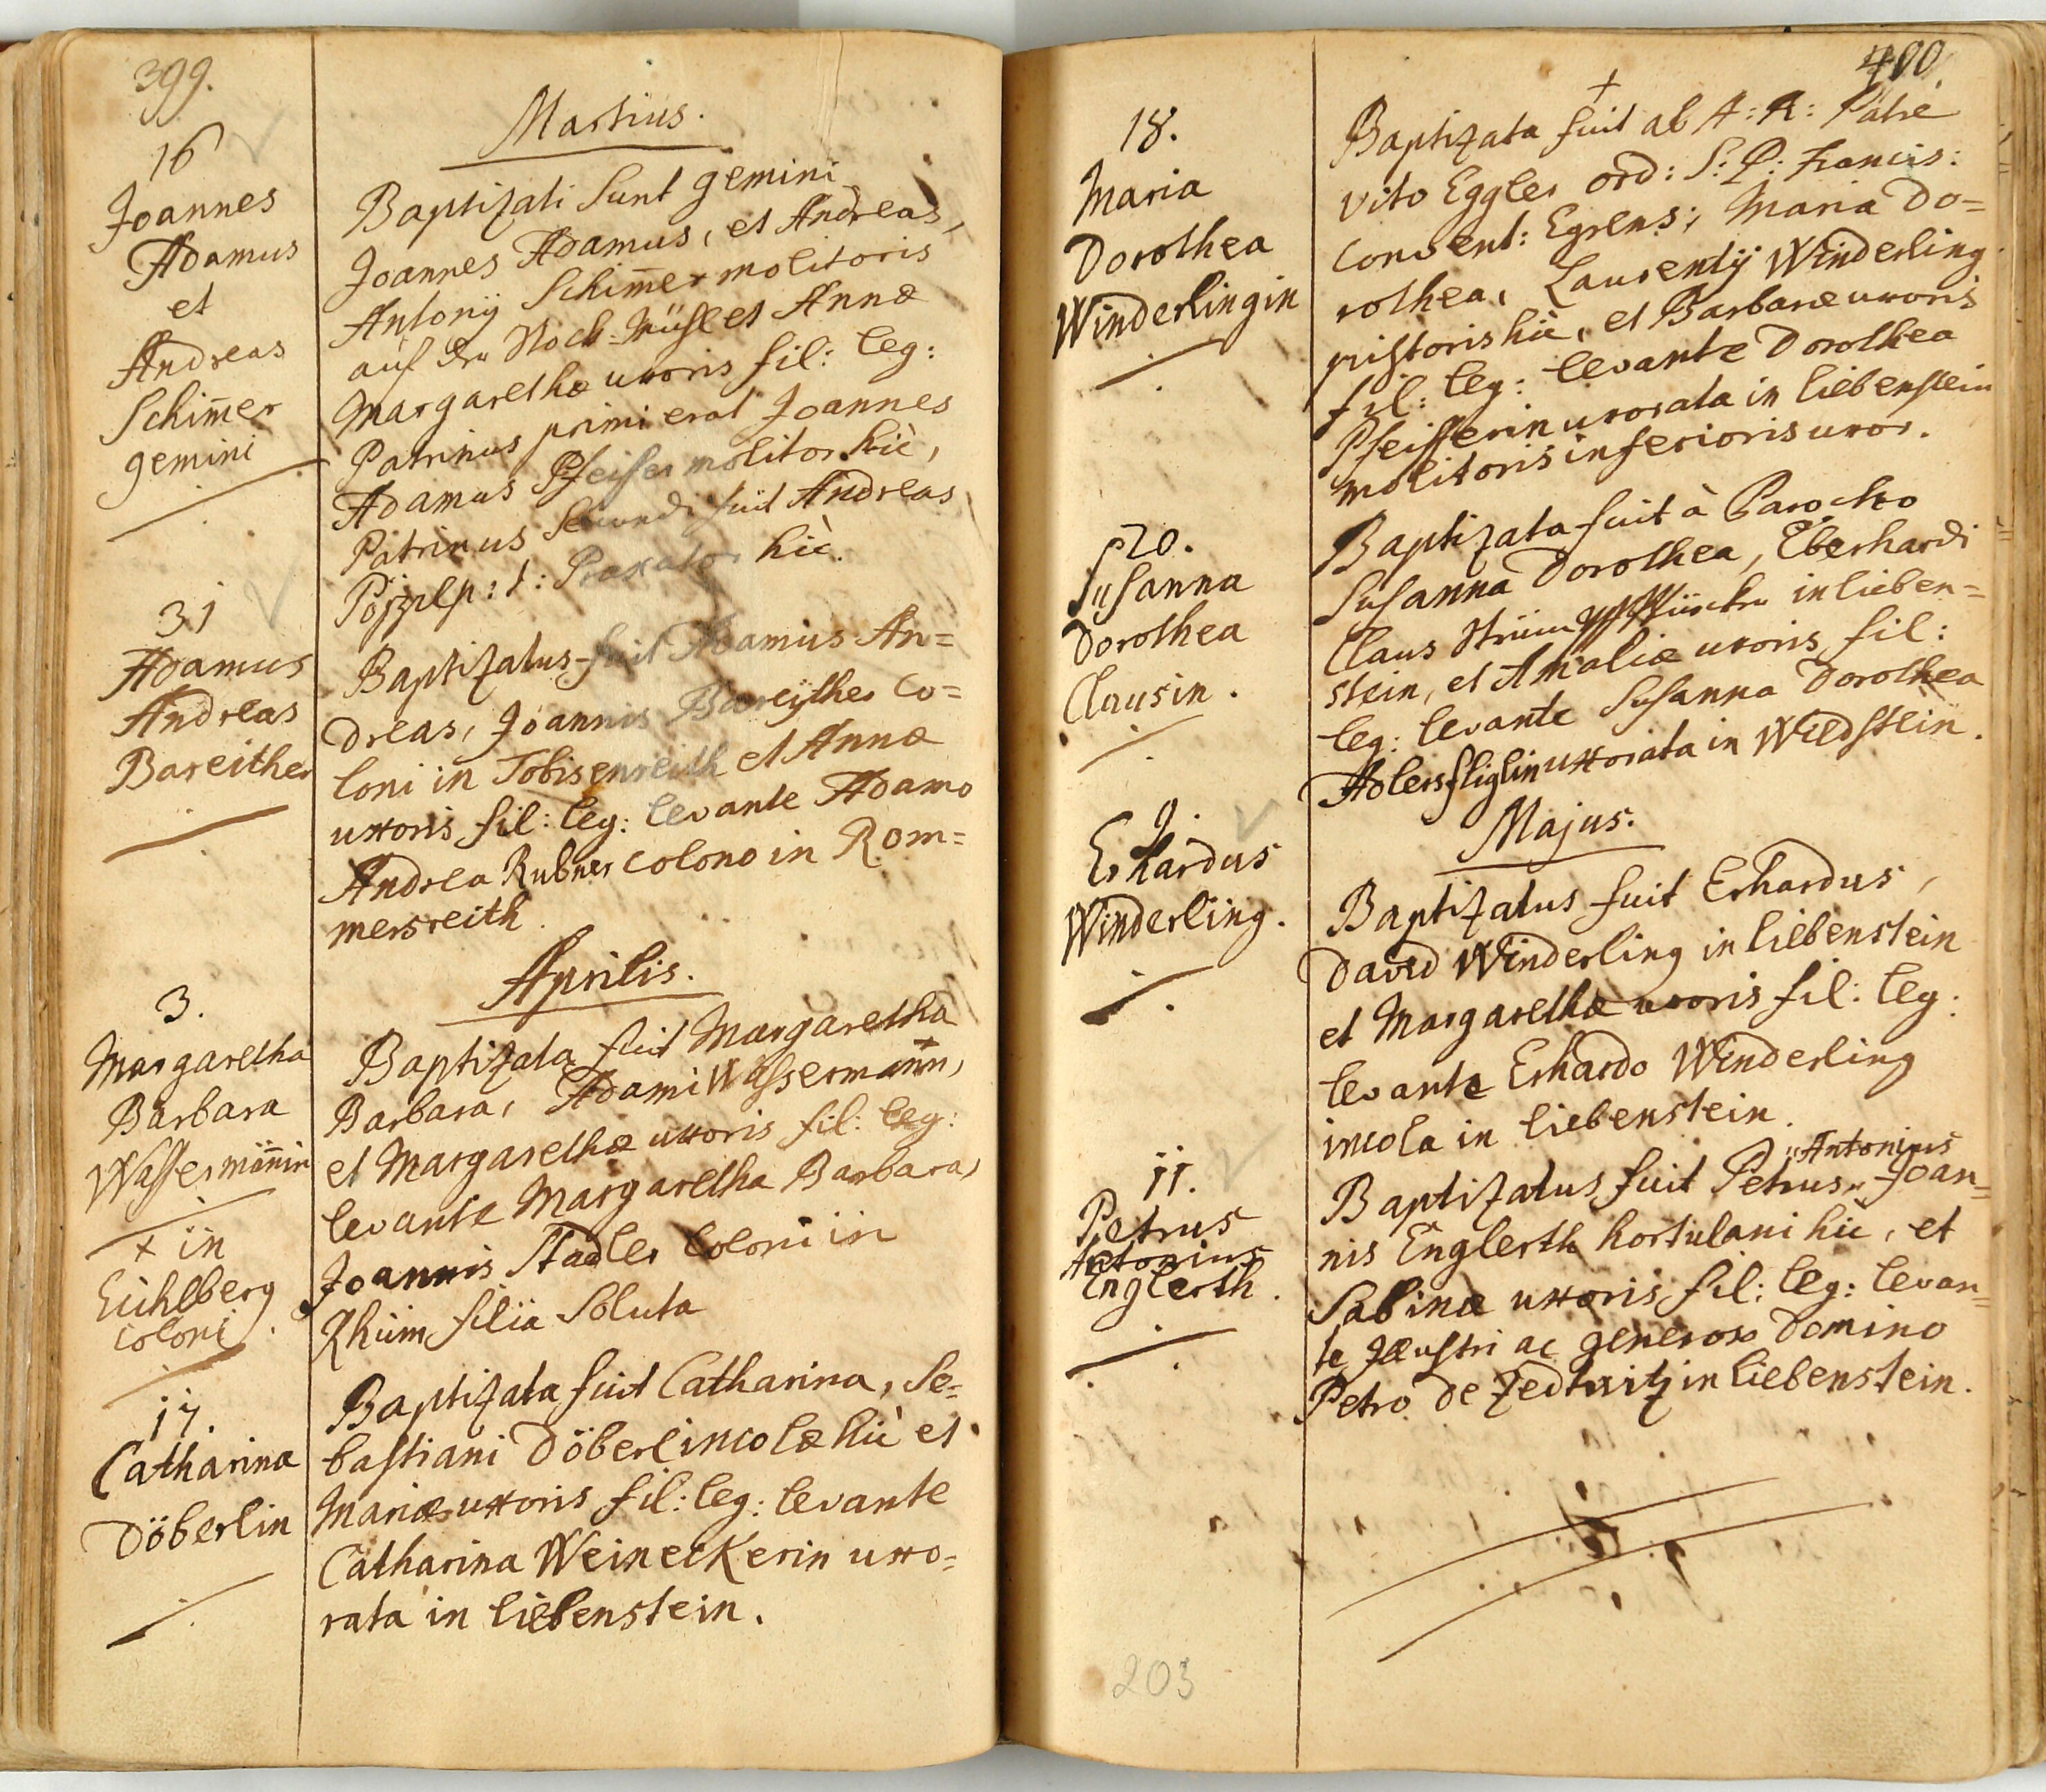 399.
Martius.
16
Joannes
Adamus
et
Andreas
Schim̅er
gemini
Baptizati sunt gemini
Joannes Adamus, et Andreas,
Antonij Schim̅er molitoris
auf der Mühl et Annæ
Margarethæ uxoris fil: leg:
Patrinus primi erat Joannes
Adamus Pfeifer molitor hìc,
Patrinus secundi fuit Andreas
p: t: Braxator hìc.
31
Adamus
Andreas
Bareither
Baptizatus fuit Adamus An=
dreas, Joannis Bareÿther co=
loni in Tobisenreith et Annæ
uxoris fil: leg: levante Adamo
Andrea Rubner colono in Rom=
mersreith.
Aprilis.
3.
Margaretha
Barbara
Wassermänin
x in
Eichlberg
coloni.
Baptizata fuit Margaretha
Barbara, Adami Wassermann, x
et Margarethæ uxoris fil: leg:
levante Margaretha Barbara,
Joannis Stadler coloni in
Rhüm filia soluta
17.
Catharina
Döberlin
Baptizata fuit Catharina, Se=
bastiani Döberl incolæ hìc et
Mariæ uxoris fil: leg: levante
Catharina Weineckerin uxo=
rata in Liebenstein.
400.
18.
Maria
Dorothea
Winderlingin
+
Baptizata fuit ab A: R: Patre
Vito Eggler ord: S: P: Francis:
Convent: Egrens; Maria Do=
rothea, Laurentij Winderling
pistoris hìc, et Barbaræ uxoris
fil: leg: levante Dorothea
Pfeifferin uxorata in Liebenstein
molitoris inferioris uxor.
20.
Susanna
Dorothea
Clausin.
Baptizata fuit à Parocho
Susanna Dorothea, Eberhardi
Claus in Lieben=
stein, et Amaliæ uxoris fil:
leg: levante Susanna Dorothea
Adlersfliglin uxorata in Wildstein.
Majus.
9.
Erhardus
Winderling.
Baptizatus fuit Erhardus,
David Winderling in Liebenstein
et Margarethæ uxoris fil: leg:
levante Erhardo Winderling
incola in Liebenstein.
11.
Petrus
Antonius
Englerth.
Antonius
Baptizatus fuit Petrus Joan=
nis Englerth hortulani hìc, et
Sabinæ uxoris fil: leg: levan=
te Illustri ac generoso Domino
Petro de Zedtwitz in Liebenstein.
203